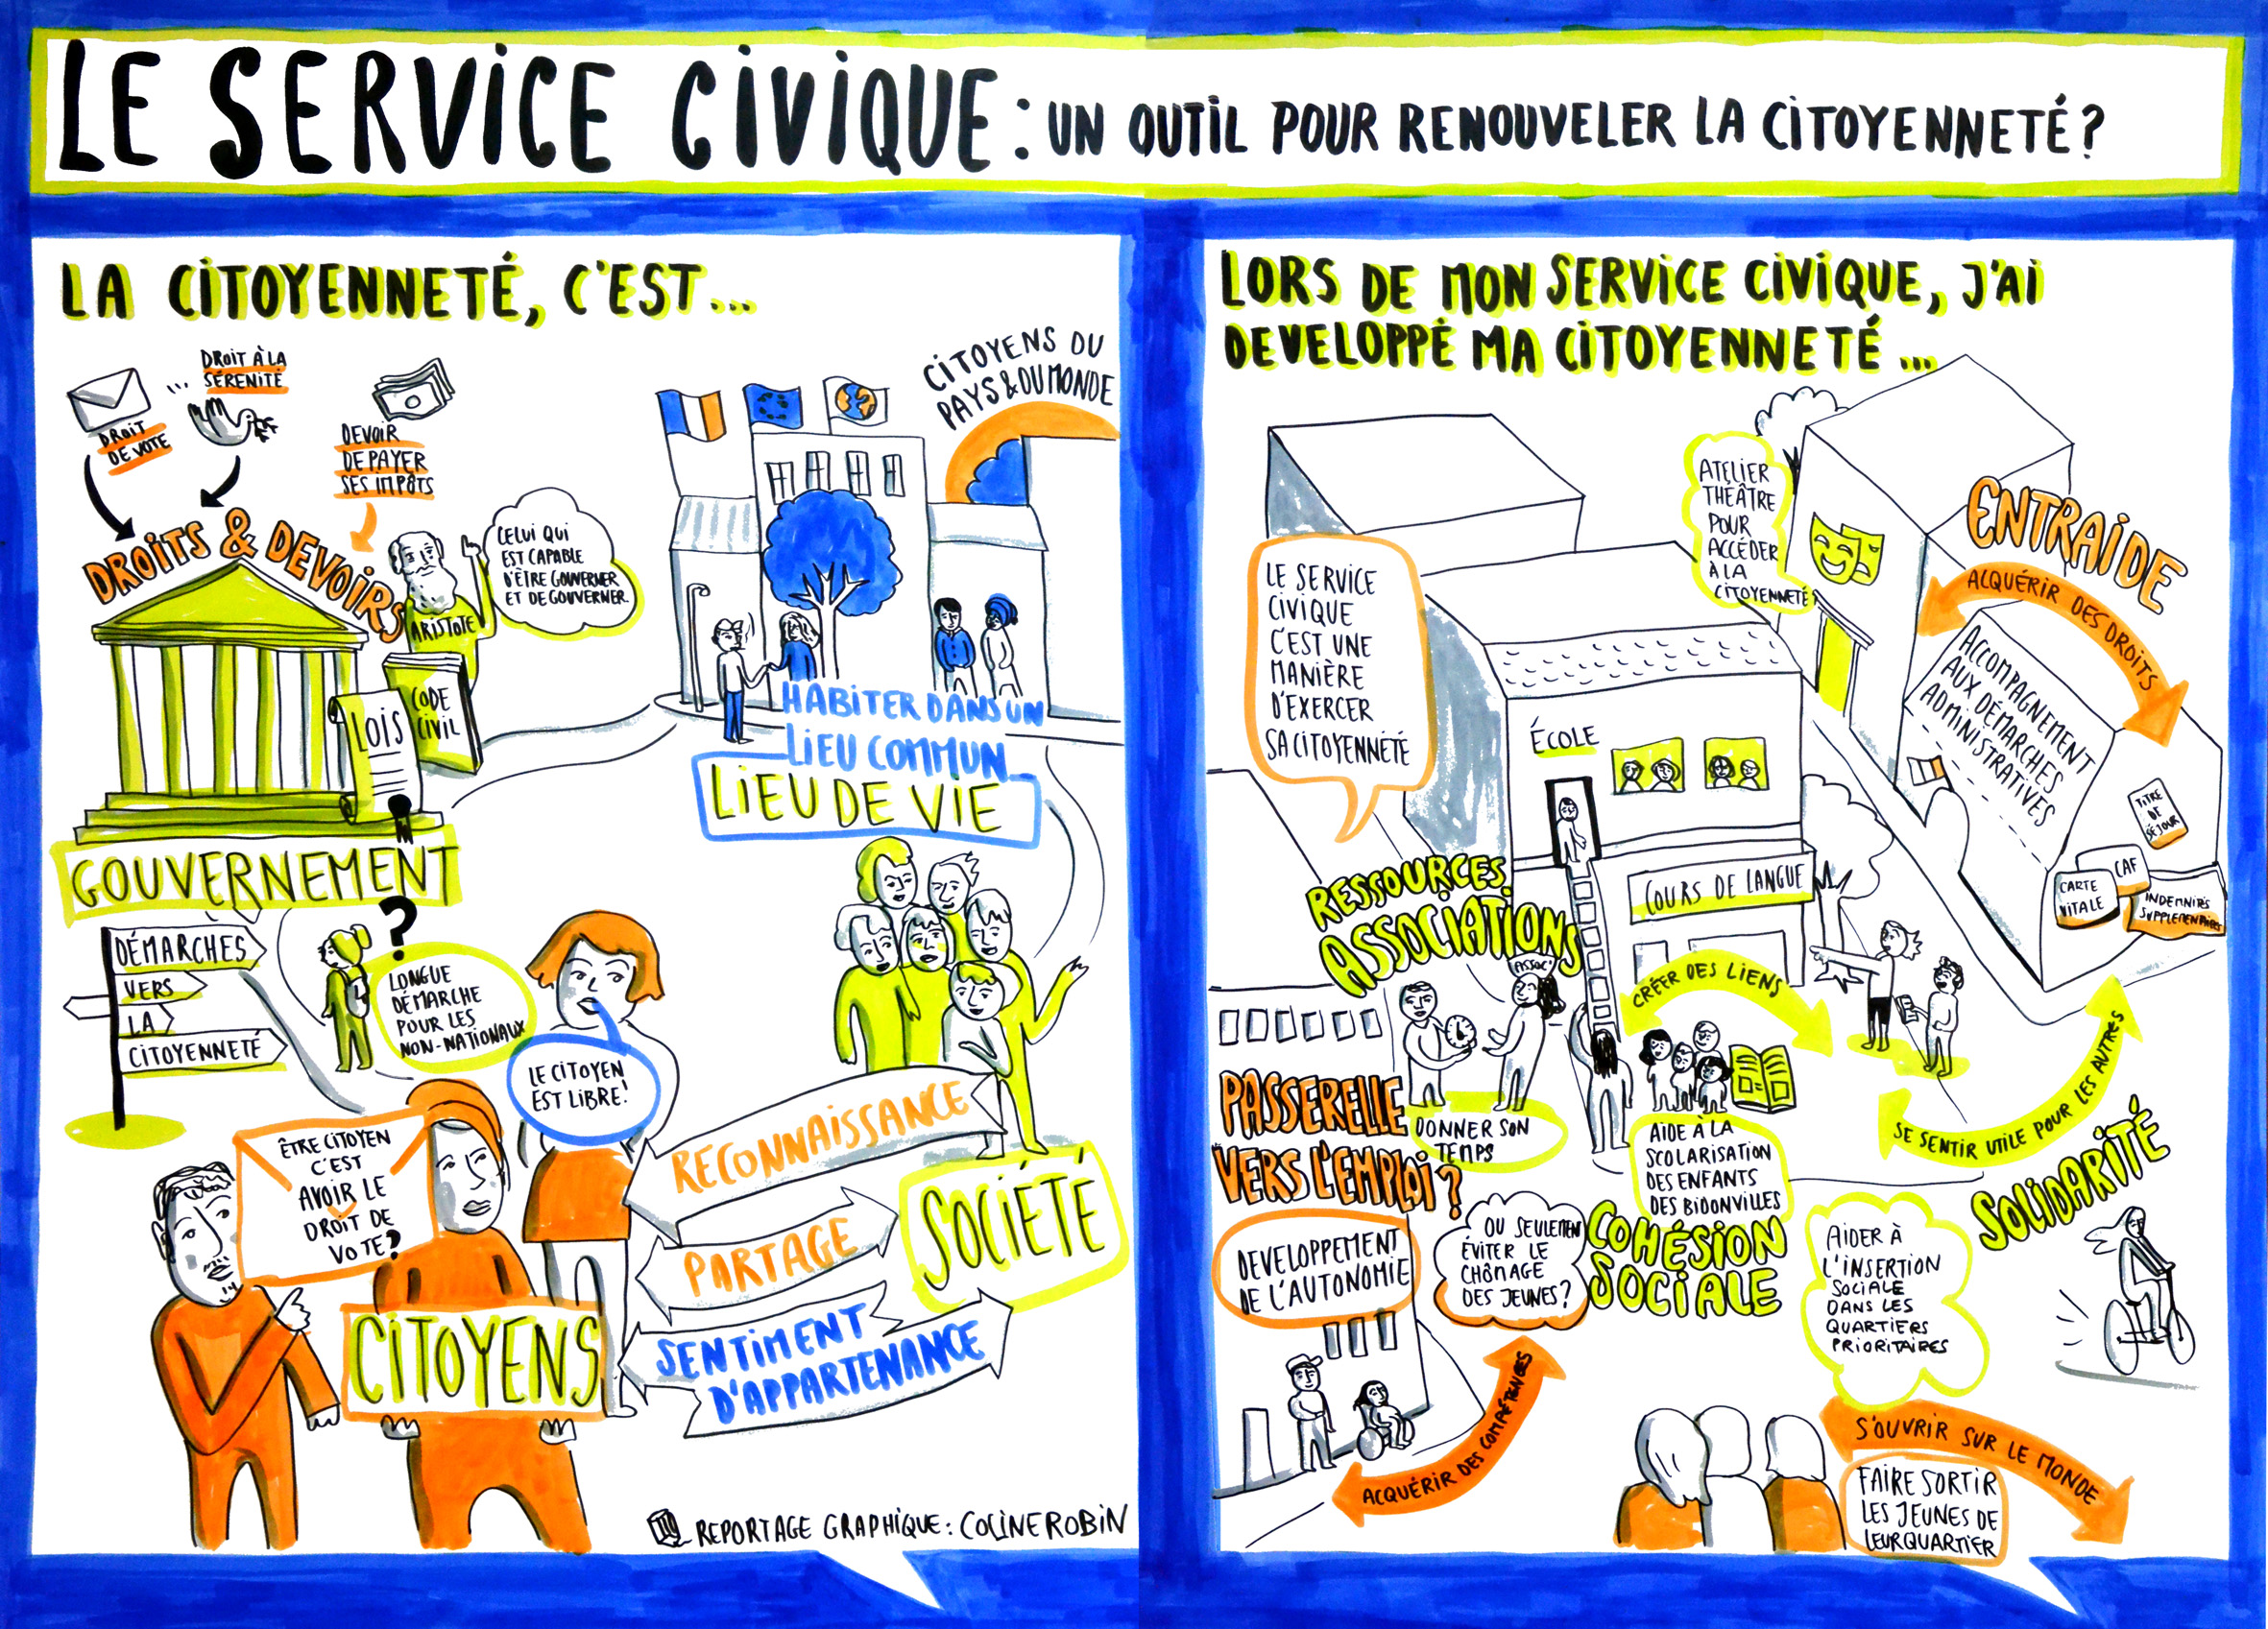 LE SERVICE CIVIQUE : UN OUTIL POUR RENOUVELER LA CITOYENNETÉ ?
LA CITOYENNETÉ, C'EST...
DROIT DE VOTE
...
DROIT À LA
SÉRENITÉ
DEVOIR
DE PAYER
SES IMPÔTS
DROITS & DEVOIRS
ARISTOTE
CELUI QUI
EST CAPABLE
D'ÊTRE GOUVERNER
ET DE GOUVERNER.
LOIS
CODE
CIVIL
GOUVERNEMENT
CITOYENS DU
PAYS & DU MONDE
HABITER DANS UN
LIEU COMMUN
LIEU DE VIE
DÉMARCHES
VERS
LA
CITOYENNETÉ
?
LONGUE
DÉMARCHE
POUR LES
NON-NATIONAUX
LE CITOYEN
EST LIBRE!
ÊTRE CITOYEN
C'EST
AVOIR LE
DROIT DE
VOTE?
CITOYENS
RECONNAISSANCE
PARTAGE
SENTIMENT
D'APPARTENANCE
SOCIÉTÉ
REPORTAGE GRAPHIQUE : COLINE ROBIN
LORS DE MON SERVICE CIVIQUE, J'AI
DEVELOPPÉ MA CITOYENNETÉ ...
LE SERVICE
CIVIQUE
C'EST UNE
MANIÈRE
D'EXERCER
SA CITOYENNETÉ
ATELIER
THÉÂTRE
POUR
ACCÉDER
À LA
CITOYENNETÉ
ENTRAIDE
ACQUÉRIR DES DROITS
ACCOMPAGNEMENT
AUX DÉMARCHES
ADMINISTRATIVES
TITRE
DE
SÉJOUR
CAF
CARTE
VITALE
INDEMNITÉS
SUPPLEMENTAIRES
ÉCOLE
COURS DE LANGUE
RESSOURCES
ASSOCIATIONS
ASSOC'
CRÉER DES LIENS
DONNER SON
TEMPS
PASSERELLE
VERS L'EMPLOI ?
AIDE À LA
SCOLARISATION
DES ENFANTS
DES BIDONVILLES
SE SENTIR UTILE POUR LES AUTRES
SOLIDARITÉ
DEVELOPPEMENT
DE L'AUTONOMIE
OU SEULEMENT
ÉVITER LE
CHÔMAGE
DES JEUNES?
COHÉSION
SOCIALE
AIDER À
L'INSERTION
SOCIALE
DANS LES
QUARTIERS
PRIORITAIRES
ACQUÉRIR DES COMPÉTENCES
S'OUVRIR SUR LE MONDE
FAIRE SORTIR
LES JEUNES DE
LEUR QUARTIER